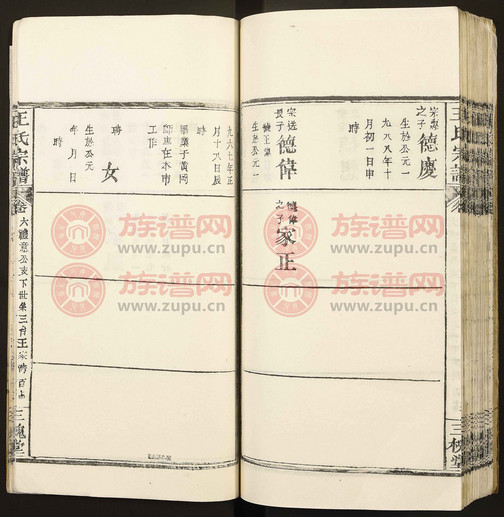 王氏宗譜 卷
三槐堂
宗憲之子
德慶
生於公元一
九八八年十
月初一日申
時
宗遠
長子
德偉
生於公元一
九六七年正
月十八日辰
時
畢業于黃岡
師専在本市
工作
娉
女
生於公元
年 月 日
時
德偉
之子
家正
王氏宗譜
卷六禮意公支下世
三槐堂
族谱网
www.zupu.cn
族谱网
www.zupu.cn
族谱网
www.zupu.cn
族谱网
www.zupu.cn
族谱网
www.zupu.cn
族谱网
www.zupu.cn